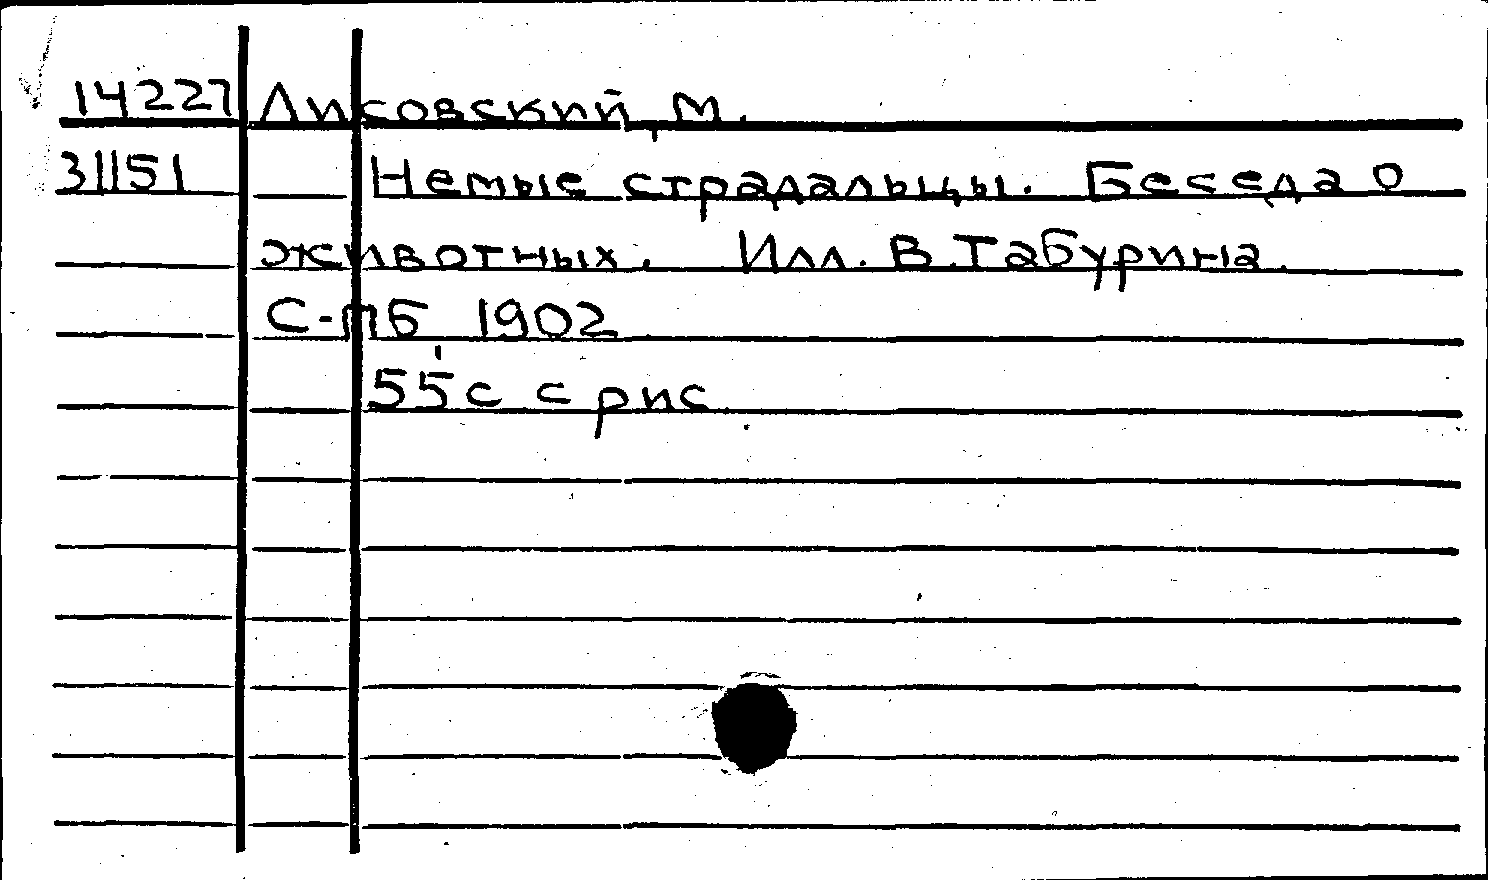 14227 Лисовский, М.
31151 Немые страдальцы. Беседа о
животных. Илл. В. Табурина.
С-пб 1902
55 с с рис